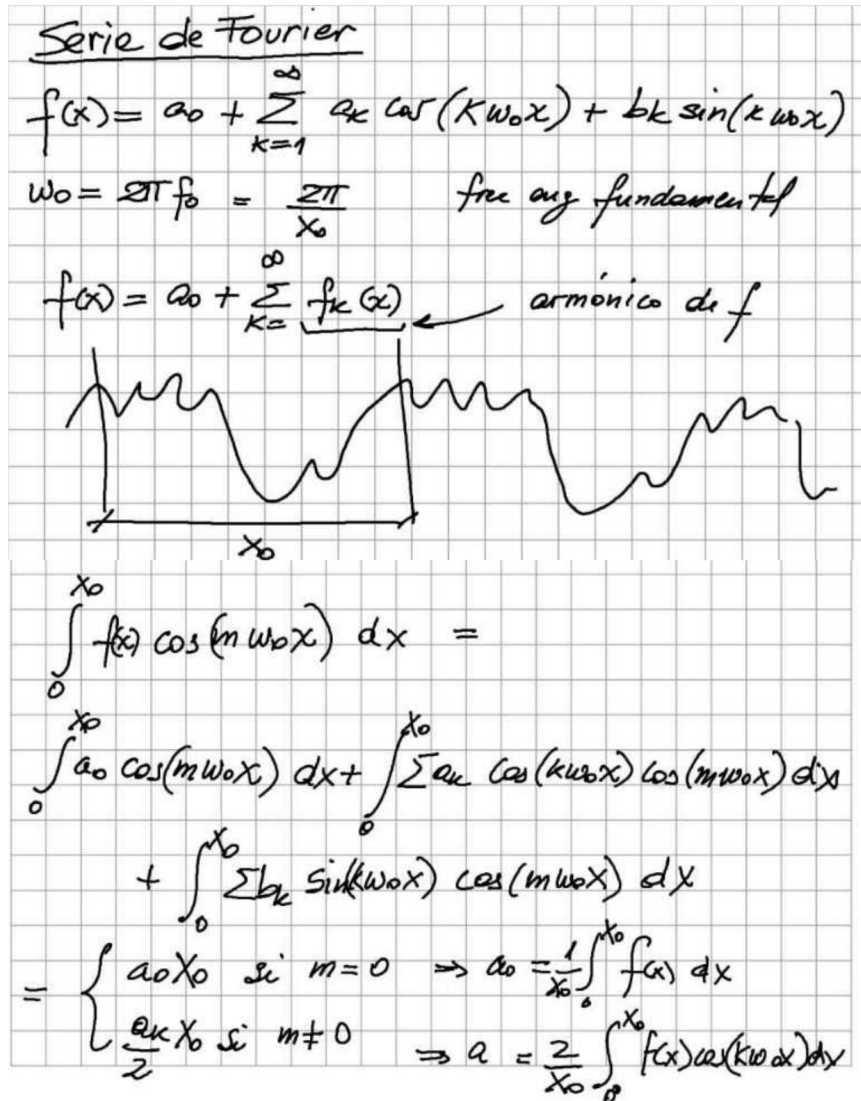 Serie de Fourier
f(x) = a₀ + ∑_{k=1}^{∞} aₖ cos(kω₀x) + bₖ sin(kω₀x)
ω₀ = 2πf₀ = 2π/X₀ frec ang fundamental
f(x) = a₀ + ∑_{k=}^{∞} fₖ(x) ← armónico de f
X₀
∫₀^{X₀} f(x) cos(mω₀x) dx =
∫₀^{X₀} a₀ cos(mω₀x) dx + ∫₀^{X₀} ∑aₖ cos(kω₀x) cos(mω₀x) dx
+ ∫₀^{X₀} ∑bₖ sin(kω₀x) cos(mω₀x) dx
= { a₀X₀ si m=0 ⇒ a₀ = 1/X₀ ∫₀^{X₀} f(x) dx
aₖ/2 X₀ si m≠0 ⇒ a = 2/X₀ ∫₀^{X₀} f(x) cos(kω₀x) dx